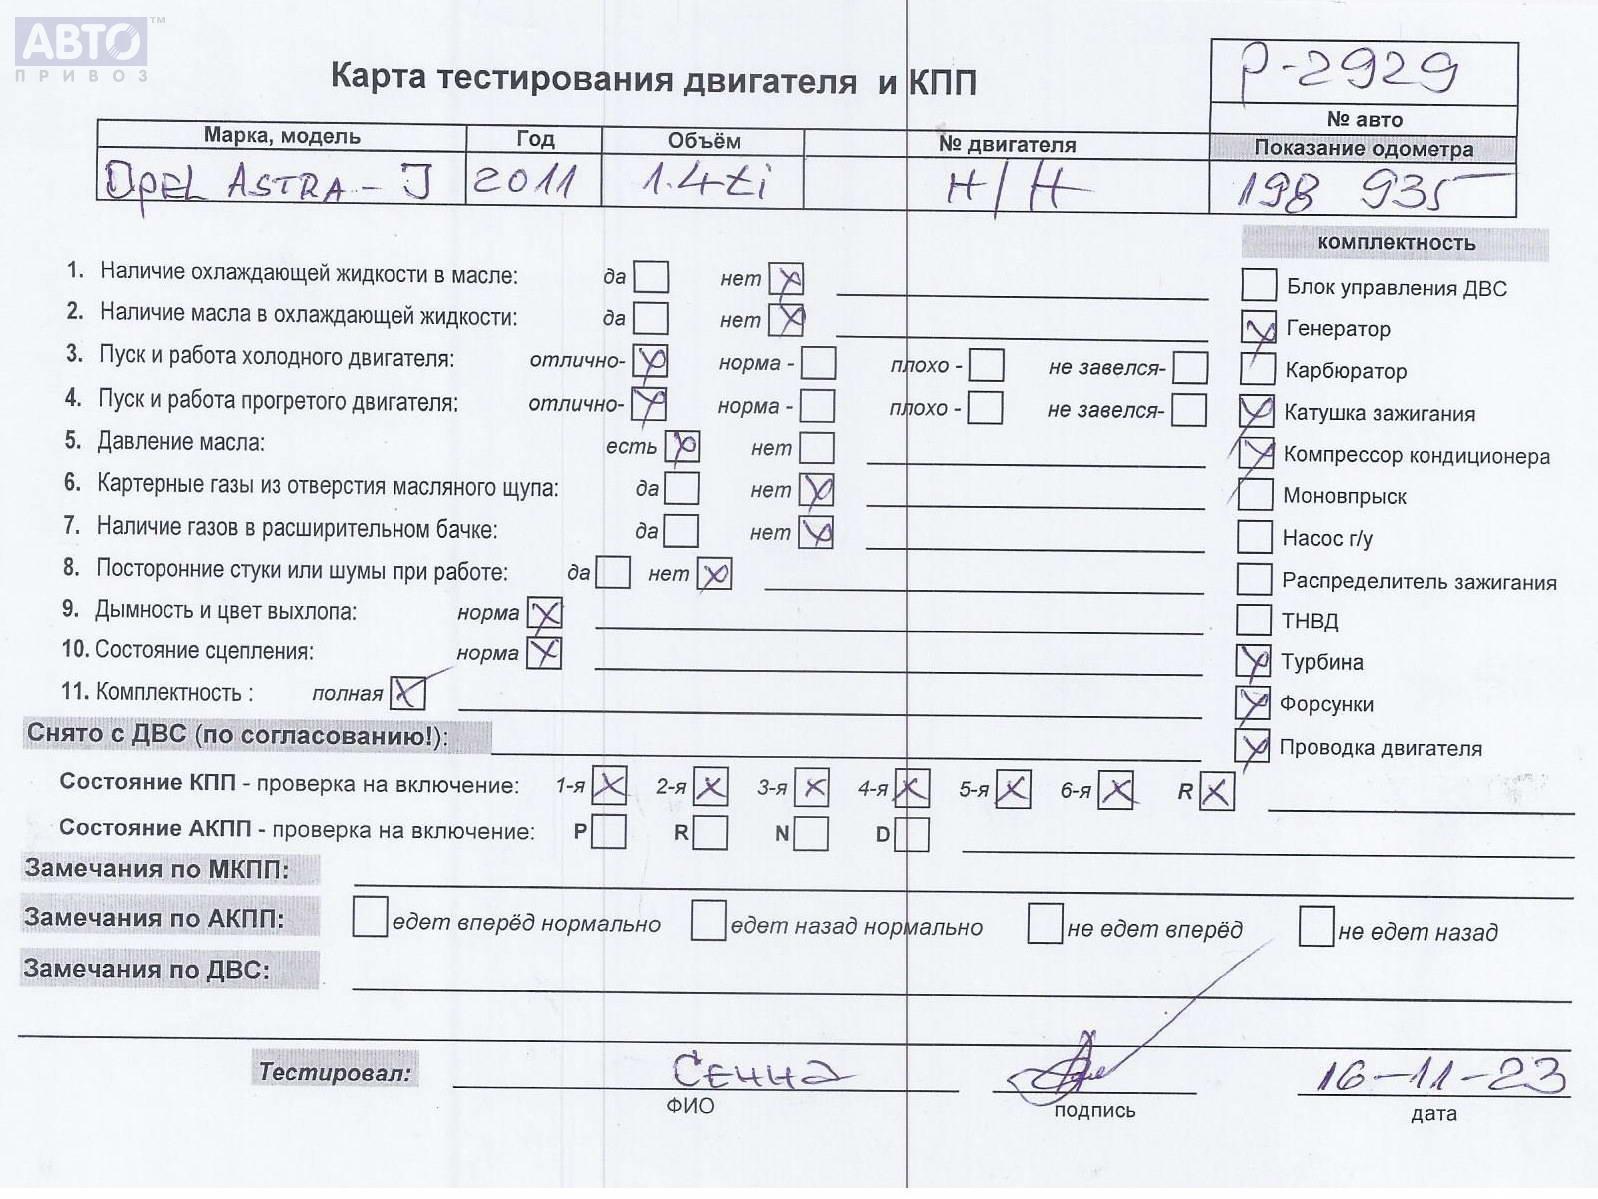 АВТО ™
ПРИВОЗ
Карта тестирования двигателя и КПП
P-2929
№ авто
Марка, модель Год Объём № двигателя Показание одометра
OPEL ASTRA-J 2011 1.4ti Н/Н 198 935
комплектность
1. Наличие охлаждающей жидкости в масле: да нет
Блок управления ДВС
2. Наличие масла в охлаждающей жидкости: да нет
Генератор
3. Пуск и работа холодного двигателя: отлично- норма - плохо - не завелся-
Карбюратор
4. Пуск и работа прогретого двигателя: отлично- норма - плохо - не завелся-
Катушка зажигания
5. Давление масла: есть нет
Компрессор кондиционера
6. Картерные газы из отверстия масляного щупа: да нет
Моновпрыск
7. Наличие газов в расширительном бачке: да нет
Насос г/у
8. Посторонние стуки или шумы при работе: да нет
Распределитель зажигания
9. Дымность и цвет выхлопа: норма
ТНВД
10. Состояние сцепления: норма
Турбина
11. Комплектность : полная
Форсунки
Снято с ДВС (по согласованию!):
Проводка двигателя
Состояние КПП - проверка на включение: 1-я 2-я 3-я 4-я 5-я 6-я R
Состояние АКПП - проверка на включение: P R N D
Замечания по МКПП:
Замечания по АКПП: едет вперёд нормально едет назад нормально не едет вперёд не едет назад
Замечания по ДВС:
Тестировал: Сенна 16-11-23
ФИО подпись дата